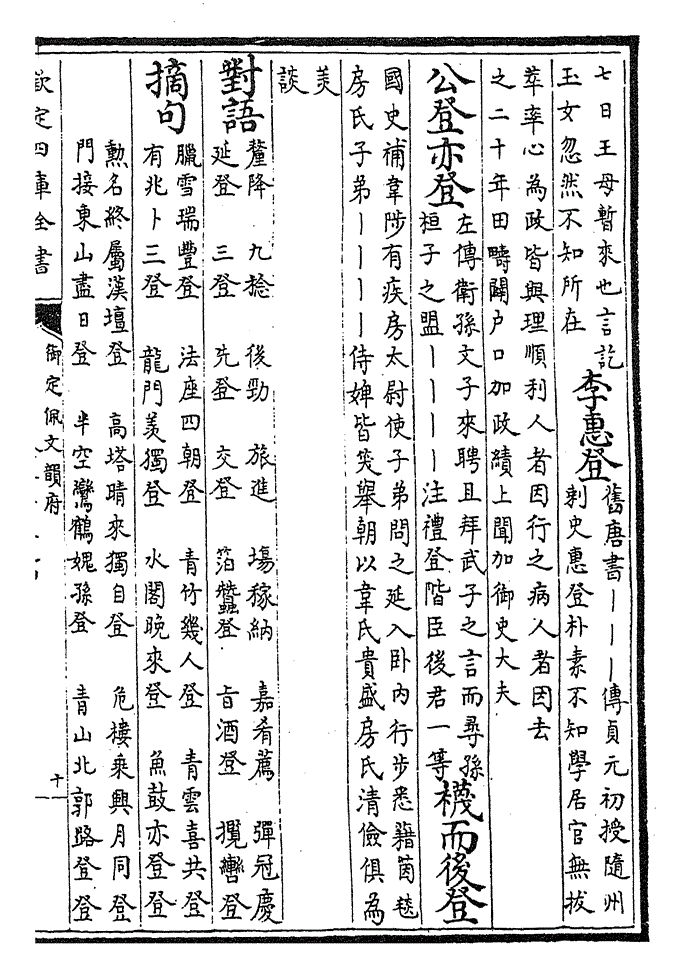 七日王母暫來也言訖
玉女忽然不知所在
李惠登
舊唐書｜｜｜傳貞元初授隨州
刺史惠登朴素不知學居官無拔
萃率心為政皆與理順利人者因行之病人者因去
之二十年田疇闢户口加政績上聞加御史大夫
公登亦登
左傳衛孫文子來聘且拜武子之言而尋孫
桓子之盟｜｜｜｜注禮登階臣後君一等
襪而後登
國史補韋陟有疾房太尉使子弟問之延入卧内行步悉藉茵毯
房氏子弟｜｜｜｜侍婢皆笑舉朝以韋氏貴盛房氏清儉俱為
美
談
對語
釐降　九捻　後勁　旅進　場稼納　嘉肴薦　彈冠慶
延登　三登　先登　交登　箔蠶登　旨酒登　攬轡登
摘句
臘雪瑞豐登　法座四朝登　青竹幾人登　青雲喜共登
有兆卜三登　龍門羡獨登　水閣晚來登　魚鼓亦登登
勲名終屬漢壇登　高塔晴來獨自登　危樓乘興月同登
門接東山盡日登　半空鸞鶴媿孫登　青山北郭路登登
欽定四庫全書
御定佩文韻府
十